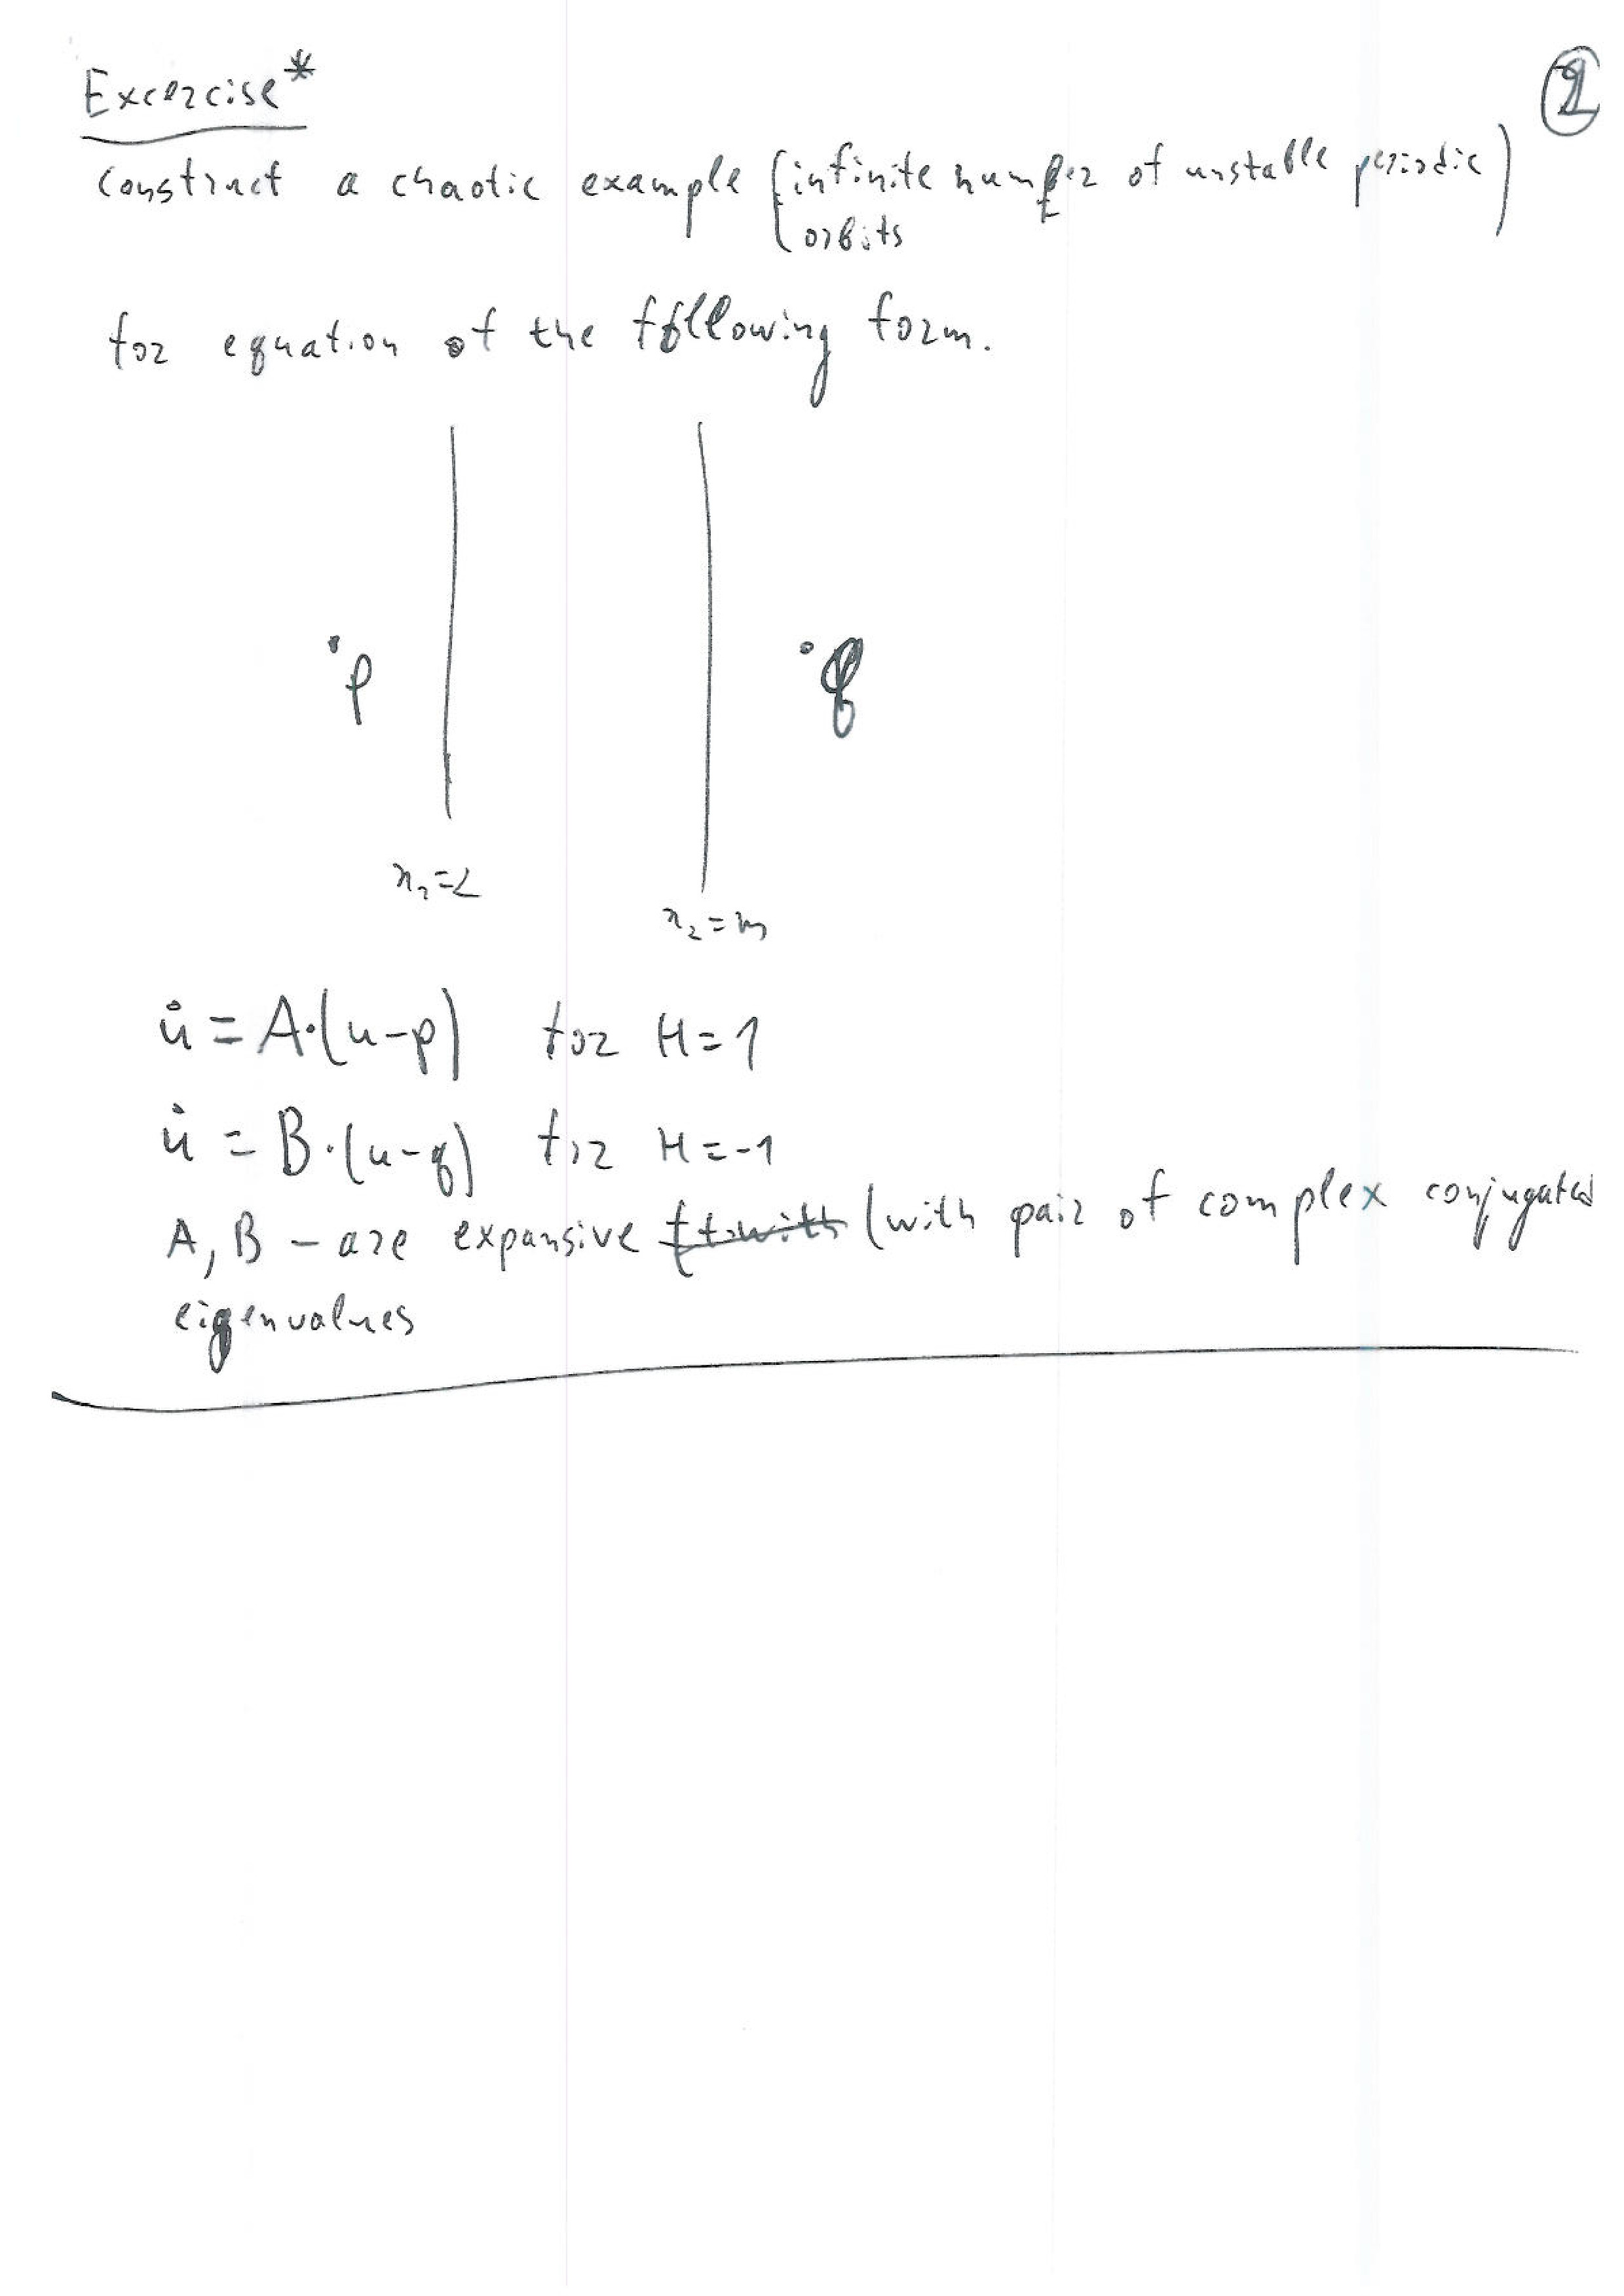 Excercise*
②
construct a chaotic example (infinite number of unstable periodic
orbits)
for equation of the following form.
p
q
x₁=L
x₂=m
u̇ = A·(u-p) for H=1
u̇ = B·(u-q) for H=-1
A, B - are expansive (with pair of complex conjugated
eigenvalues